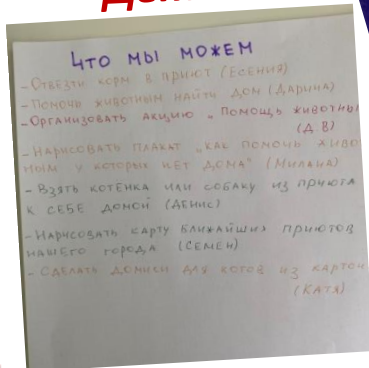 ЧТО МЫ МОЖЕМ
- ОТВЕЗТИ КОРМ В ПРИЮТ (ЕСЕНИЯ)
- ПОМОЧЬ ЖИВОТНЫМ НАЙТИ ДОМ (ДАРИНА)
- ОРГАНИЗОВАТЬ АКЦИЮ „ПОМОЩЬ ЖИВОТНЫ
(Д.В)
- НАРИСОВАТЬ ПЛАКАТ „КАК ПОМОЧЬ ЖИВО
НЫМ У КОТОРЫХ НЕТ ДОМА" (МИЛАНА)
- ВЗЯТЬ КОТЁНКА ИЛИ СОБАКУ ИЗ ПРИЮТА
К СЕБЕ ДОМОЙ (ДЕНИС)
- НАРИСОВАТЬ КАРТУ БЛИЖАЙШИХ ПРИЮТОВ
НАШЕГО ГОРОДА (СЕМЕН)
- СДЕЛАТЬ ДОМИКИ ДЛЯ КОТОВ ИЗ КАРТОН
(КАТЯ)